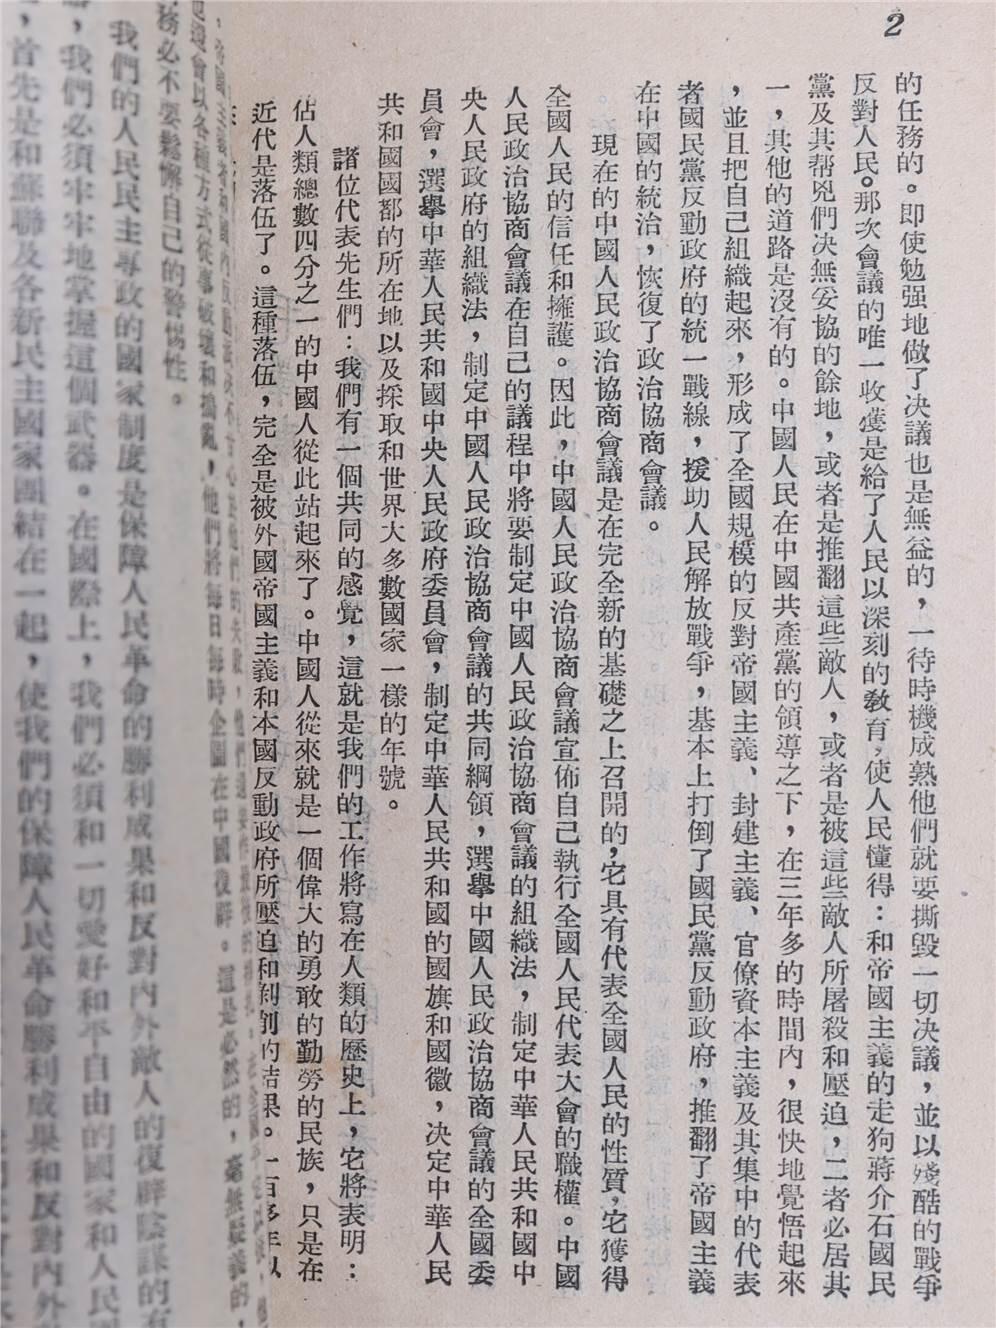 2
的任務的。即使勉强地做了决議也是無益的，一待時機成熟他們就要撕毀一切决議，並以殘酷的戰爭
反對人民。那次會議的唯一收獲是給了人民以深刻的敎育，使人民懂得：和帝國主義的走狗蔣介石國民
黨及其帮兇們决無妥協的餘地，或者是推翻這些敵人，或者是被這些敵人所屠殺和壓迫，二者必居其
一，其他的道路是沒有的。中國人民在中國共產黨的領導之下，在三年多的時間內，很快地覺悟起來
，並且把自己組織起來，形成了全國規模的反對帝國主義、封建主義、官僚資本主義及其集中的代表
者國民黨反動政府的統一戰線，援助人民解放戰爭，基本上打倒了國民黨反動政府，推翻了帝國主義
在中國的統治，恢復了政治協商會議。
現在的中國人民政治協商會議是在完全新的基礎之上召開的，它具有代表全國人民的性質，它獲得
全國人民的信任和擁護。因此，中國人民政治協商會議宣佈自己執行全國人民代表大會的職權。中國
人民政治協商會議在自己的議程中將要制定中國人民政治協商會議的組織法，制定中華人民共和國中
央人民政府的組織法，制定中國人民政治協商會議的共同綱領，選舉中國人民政治協商會議的全國委
員會，選舉中華人民共和國中央人民政府委員會，制定中華人民共和國的國旗和國徽，决定中華人民
共和國國都的所在地以及採取和世界大多數國家一樣的年號。
諸位代表先生們：我們有一個共同的感覺，這就是我們的工作將寫在人類的歷史上，它將表明：
佔人類總數四分之一的中國人從此站起來了。中國人從來就是一個偉大的勇敢的勤勞的民族，只是在
近代是落伍了。這種落伍，完全是被外國帝國主義和本國反動政府所壓迫和剝削的結果。一百多年以
迅速會以各種方式從事破壞和搗亂，他們將每日每時企圖在中國復辟。這是必然的，毫無疑義的，
務必不要鬆懈自己的警惕性。
我們的人民民主專政的國家制度是保障人民革命的勝利成果和反對內外敵人的復辟陰謀的有
，我們必須牢牢地掌握這個武器。在國際上，我們必須和一切愛好和平自由的國家和人民
，首先是和蘇聯及各新民主國家團結在一起，使我們的保障人民革命勝利成果和反對內外